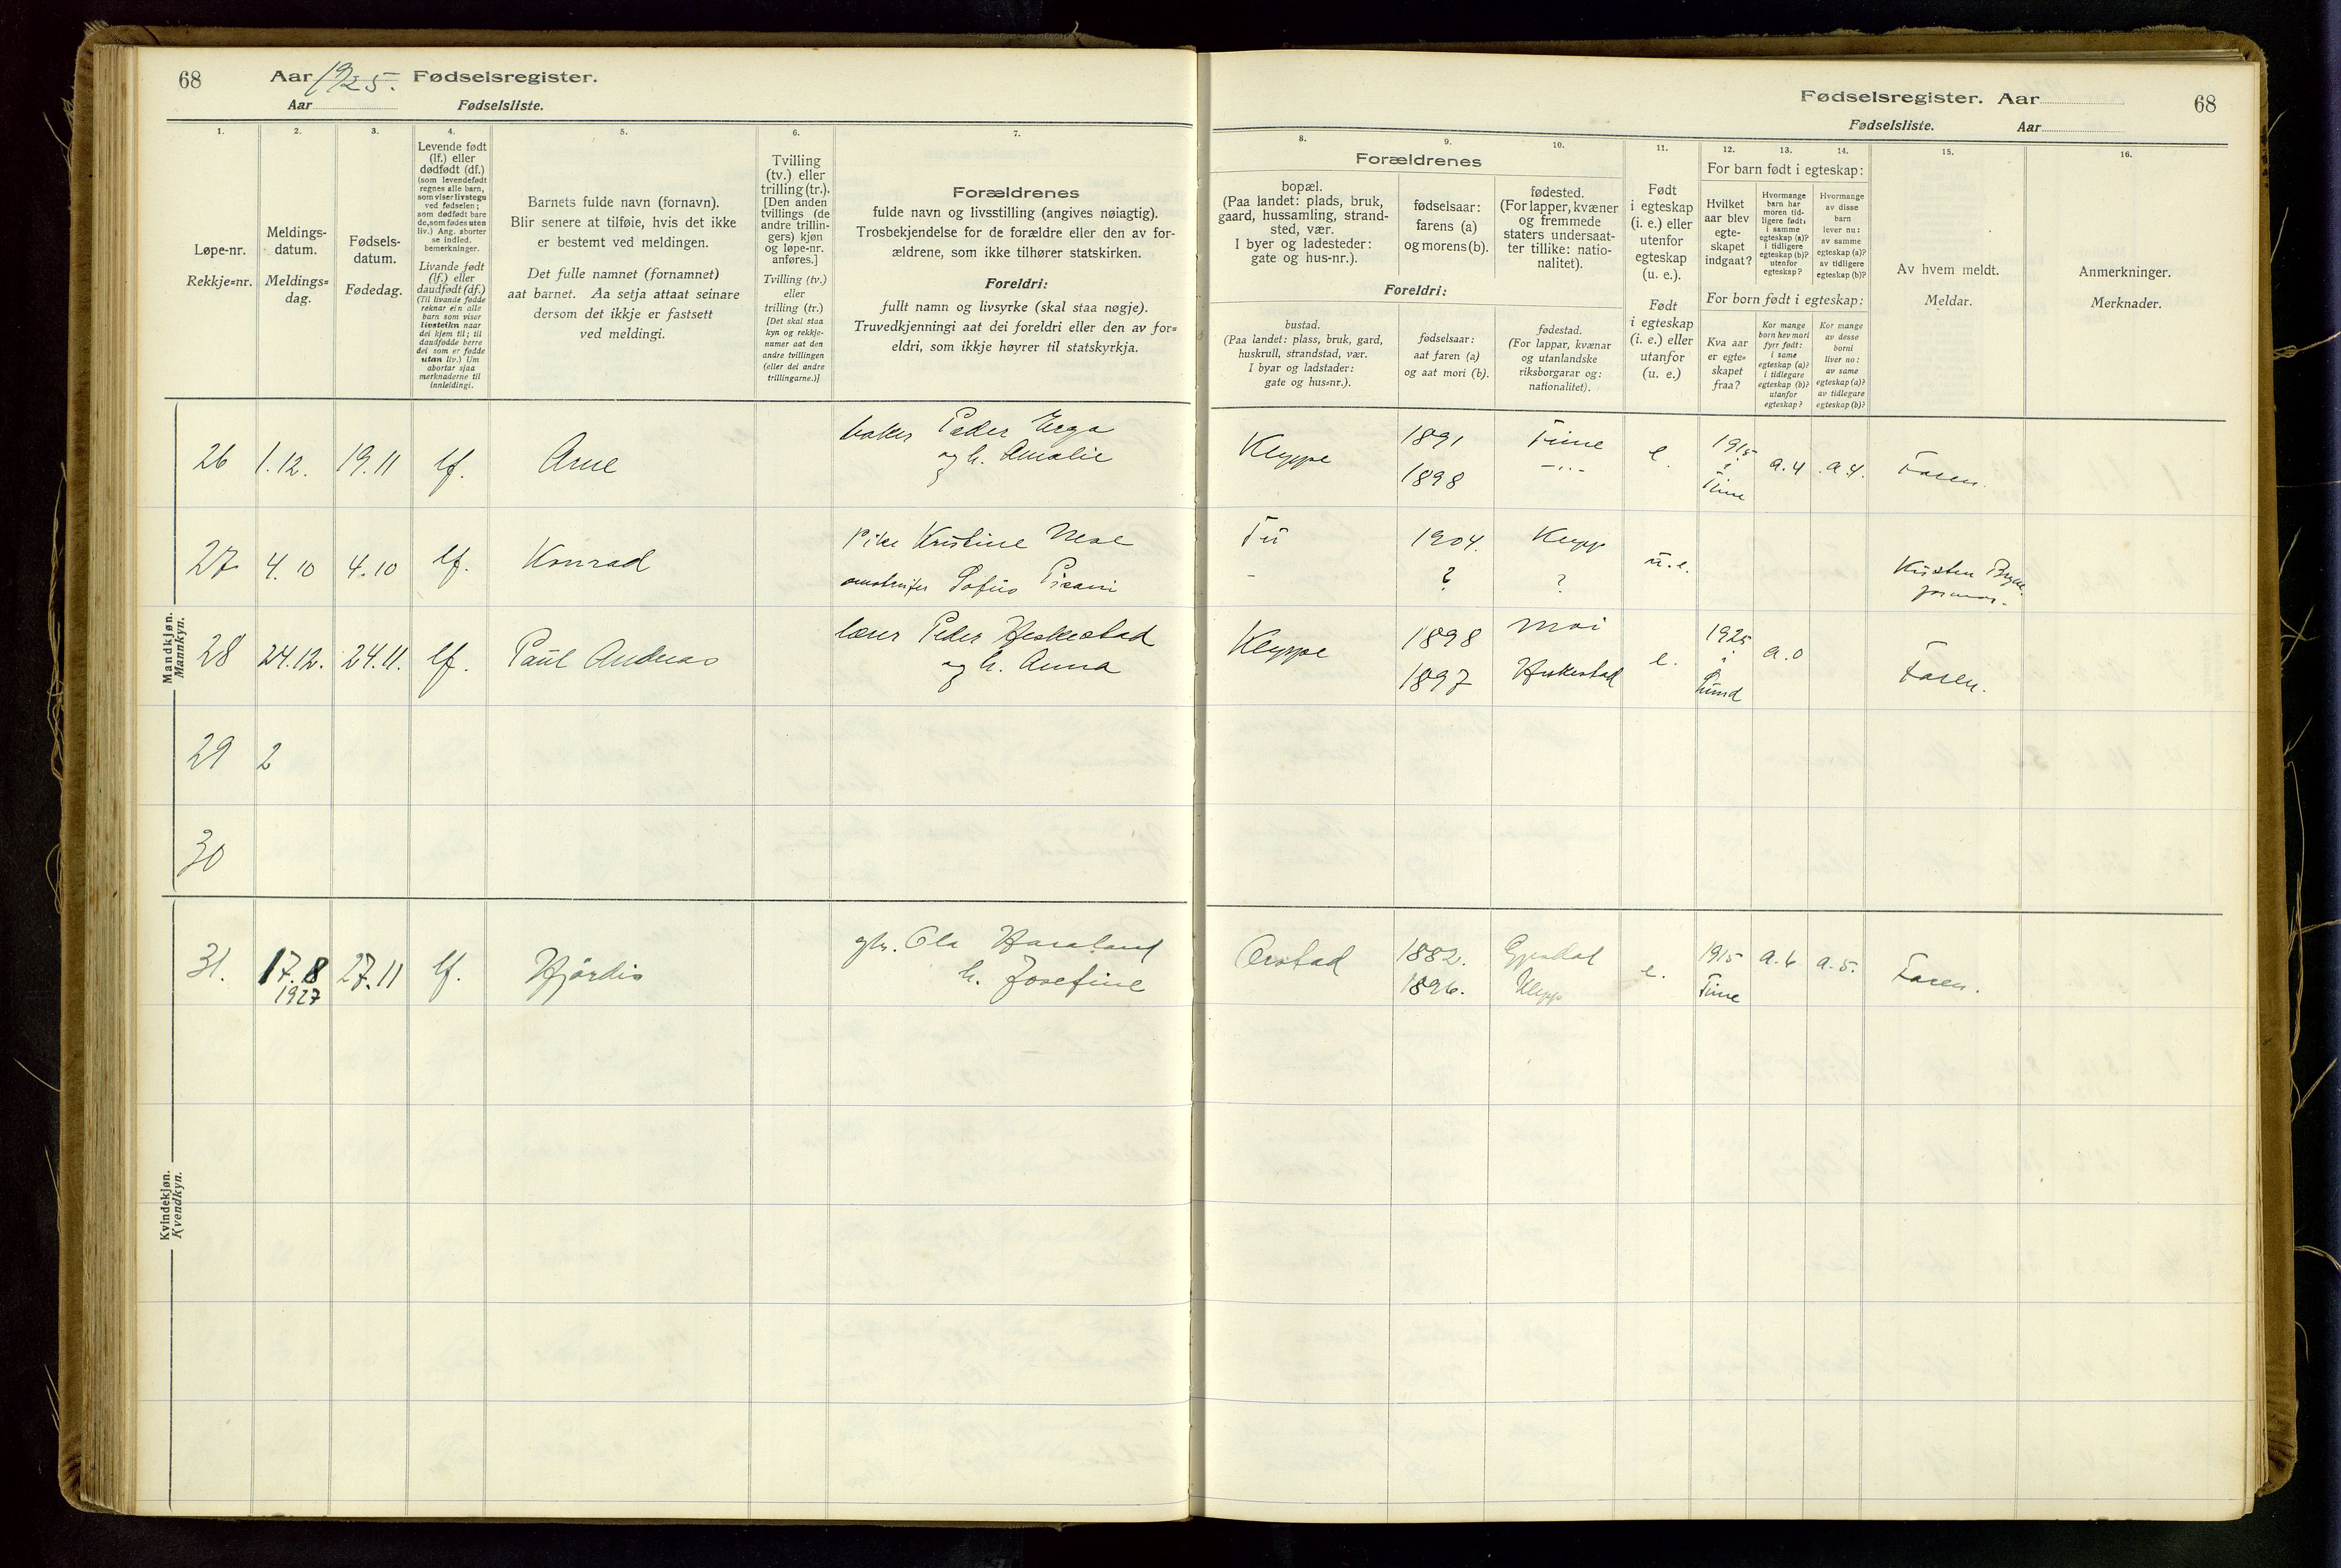 68
Aar 1925. Fødselsregister.
Aar Fødselsliste.
1.
Løpe-nr.
Rekkje=nr.
2.
Meldings-
datum.
Meldings=
dag.
3.
Fødsels-
datum.
Fødedag.
4.
Levende født
(lf.) eller
dødfødt (df.)
(som levendefødt
regnes alle barn,
som viser livstegn
ved fødselen;
som dødfødt bare
de, som fødes uten
liv.) Ang. aborter
se indled.
bemerkninger.
Livande født
(lf.) eller
daudfødt (df.)
(Til livande fødde
reknar ein alle
barn som viser
livsteikn naar
dei kjem til; til
daudfødde berre
dei som er fødde
utan liv.) Um
abortar sjaa
merknaderne til
innleidingi.
5.
Barnets fulde navn (fornavn).
Blir senere at tilføie, hvis det ikke
er bestemt ved meldingen.
Det fulle namnet (fornamnet)
aat barnet. Aa setja attaat seinare
dersom det ikkje er fastsett
ved meldingi.
6.
Tvilling
(tv.) eller
trilling (tr.).
[Den anden
tvillings (de
andre trillin-
gers) kjøn
og løpe-nr.
anføres.]
Tvilling (tv.)
eller
trilling (tr.)
[Det skal staa
kyn og rekkje-
numer aat den
andre tvillingen
(eller dei andre
trillingarne.)]
7.
Forældrenes
fulde navn og livsstilling (angives nøiagtig).
Trosbekjendelse for de forældre eller den av for-
ældrene, som ikke tilhører statskirken.
Foreldri:
fullt namn og livsyrke (skal staa nøgje).
Truvedkjenningi aat dei foreldri eller den av for=
eldri, som ikkje høyrer til statskyrkja.
Mandkjøn.
Mannkyn.
26 1.12. 19.11 lf. Arne
baker Peder Erga
og h. Amalie
27 4.10 4.10 lf. Konrad
Pike Kristine Nese
Sofus Pisani
28 24.12. 24.11. lf. Paul Andreas
lærer Peder Heskestad
og h. Anna
29 2
30
Kvindekjøn.
Kvendkyn.
31. 17.8 27.11 lf. Hjørdis
1927
gbr. Ola Haraland
h. Josefine
Fødselsregister. Aar 68
Fødselsliste. Aar
8.
Forældrenes
bopæl.
(Paa landet: plads, bruk,
gaard, hussamling, strand-
sted, vær.
I byer og ladesteder:
gate og hus-nr.).
Foreldri:
bustad.
(Paa landet: plass, bruk, gard,
huskrull, strandstad, vær.
I byar og ladstader:
gate og hus=nr.).
9.
fødselsaar:
farens (a)
og morens (b).
fødselsaar:
aat faren (a)
og aat mori (b).
10.
fødested.
(For lapper, kvæner
og fremmede
staters undersaat-
ter tillike: natio-
nalitet).
fødestad.
(For lappar, kvænar
og utanlandske
riksborgarar og:
nationalitet).
11.
Født
i egteskap
(i. e.) eller
utenfor
egteskap
(u. e.).
Født
i egteskap
(i. e.) eller
utanfor
(u. e.)
12.
13.
14.
For barn født i egteskap:
Hvilket
aar blev
egte-
skapet
indgaat?
Hvormange
barn har
moren tid-
ligere født:
i samme
egteskap (a)?
i tidligere
egteskap (b)?
utenfor
egteskap?
Hvormange
av disse
barn
lever nu:
av samme
egteskap (a)?
av tidligere
egteskap (b)?
For born født i egteskap:
Kva aar
er egte=
skapet
fraa?
Kor mange
born hev mori
fyrr født:
i same
egteskap (a)?
i tidlegare
egteskap (b)?
utanfor
egteskap?
Kor mange
av desse
borni
liver no:
av same
egteskap (a)?
av tidlegare
egteskap (b)?
15.
Av hvem meldt.
Meldar.
16.
Anmerkninger.
Merknader.
Kleppe 1891 Time e. 1915 a.4 a.4. Faren.
1898 —"— i
Time
Tu 1904. Klepp u.e. Kirsten Bryne
- ? ? jormor.
Kleppe 1898 Moi e. 1925 a.0 Faren.
1897 Heskestad i
Lund
Orstad 1882. Gjesdal e. 1915 a.6 a.5. Faren.
1896. Klepp Time